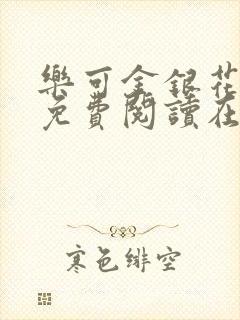 樂可金銀花
免費閱讀在
寒色緋空